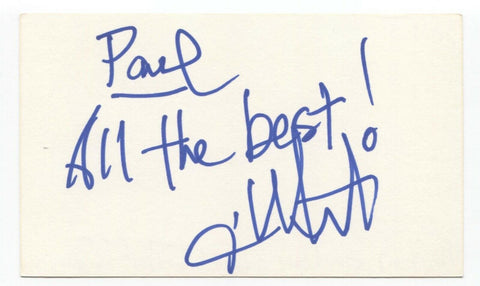 Paul
All the best!